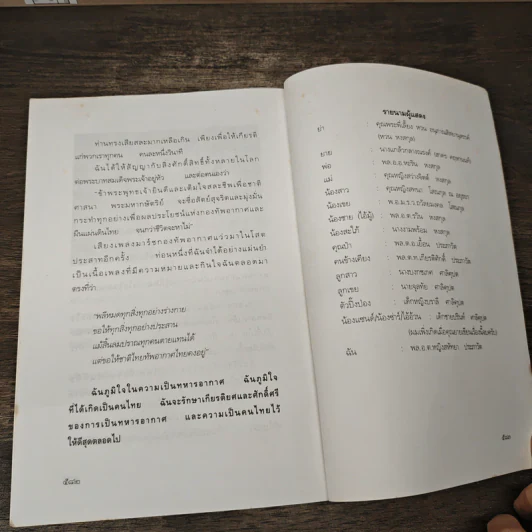 ท่านทรงเสียสละมากเหลือเกิน เพียงเพื่อให้เกียรติ
แก่พวกเราทุกคน คนละหนึ่งวินาที
ฉันได้ให้สัญญากับสิ่งศักดิ์สิทธิ์ทั้งหลายในโลก
ต่อพระบาทสมเด็จพระเจ้าอยู่หัว และต่อตนเองว่า
"ข้าพระพุทธเจ้ายินดีและเต็มใจสละชีพเพื่อชาติ
ศาสนา พระมหากษัตริย์ จะซื่อสัตย์สุจริตและมุ่งมั่น
กระทำทุกอย่างเพื่อผลประโยชน์แห่งกองทัพอากาศและ
ผืนแผ่นดินไทย จนกว่าชีวิตจะหาไม่"
เสียงเพลงมาร์ชกองทัพอากาศแว่วมาในโสต
ประสาทอีกครั้ง ท่อนหนึ่งที่ฉันจำได้อย่างแม่นยำ
เป็นเนื้อเพลงที่มีความหมายและกินใจฉันตลอดมา
ตรงที่ว่า
"พลีหมดทุกสิ่งทุกอย่างร่างกาย
ขอให้ทุกสิ่งทุกอย่างประสาน
แม้สิ้นลมปราณทุกคนตายแทนได้
แต่ขอให้ชาติไทยทัพอากาศไทยคงอยู่"
ฉันภูมิใจในความเป็นทหารอากาศ ฉันภูมิใจ
ที่ได้เกิดเป็นคนไทย ฉันจะรักษาเกียรติยศและศักดิ์ศรี
ของการเป็นทหารอากาศ และความเป็นคนไทยไว้
ให้ดีสุดตลอดไป
๕๘๒
รายนามผู้แสดง
ย่า : คุณพระพี่เลี้ยง หวน
(หวน หงสกุล)
ยาย : นางแก้วกลางณรงค์
พ่อ : พล.อ.อ.หริน หงสกุล
แม่ : คุณหญิงสวาสดิ์ หงสกุล
น้องสาว : คุณหญิง โสณกุล ณ อยุธยา
น้องเขย : พ.อ.ม.ร.ว. โสณกุล
น้องชาย (ไอ้ผู้) : พล.อ.ต. หงสกุล
น้องสะใภ้ : นางงามพร้อม หงสกุล
คุณป๋า : พล.อ.อ.เอื้อน ประภาวัต
คนข้างเตียง : พล.อ.ท.เกียรติศักดิ์ ประภาวัต
ลูกสาว : นางบงกชเกศ
ลูกเขย : นายจุลทัย
ตัวปิ๊งป่อง : เด็กหญิงเบรารี
น้องแซนด์/น้องชาร์/ไอ้อ้วน : เด็กชาย
(ผมเพิ่งเกิดเมื่อคุณยายเขียนเรื่องนี้จบครับ)
ฉัน : พล.อ.ต.หญิงหทัยา ประภาวัต